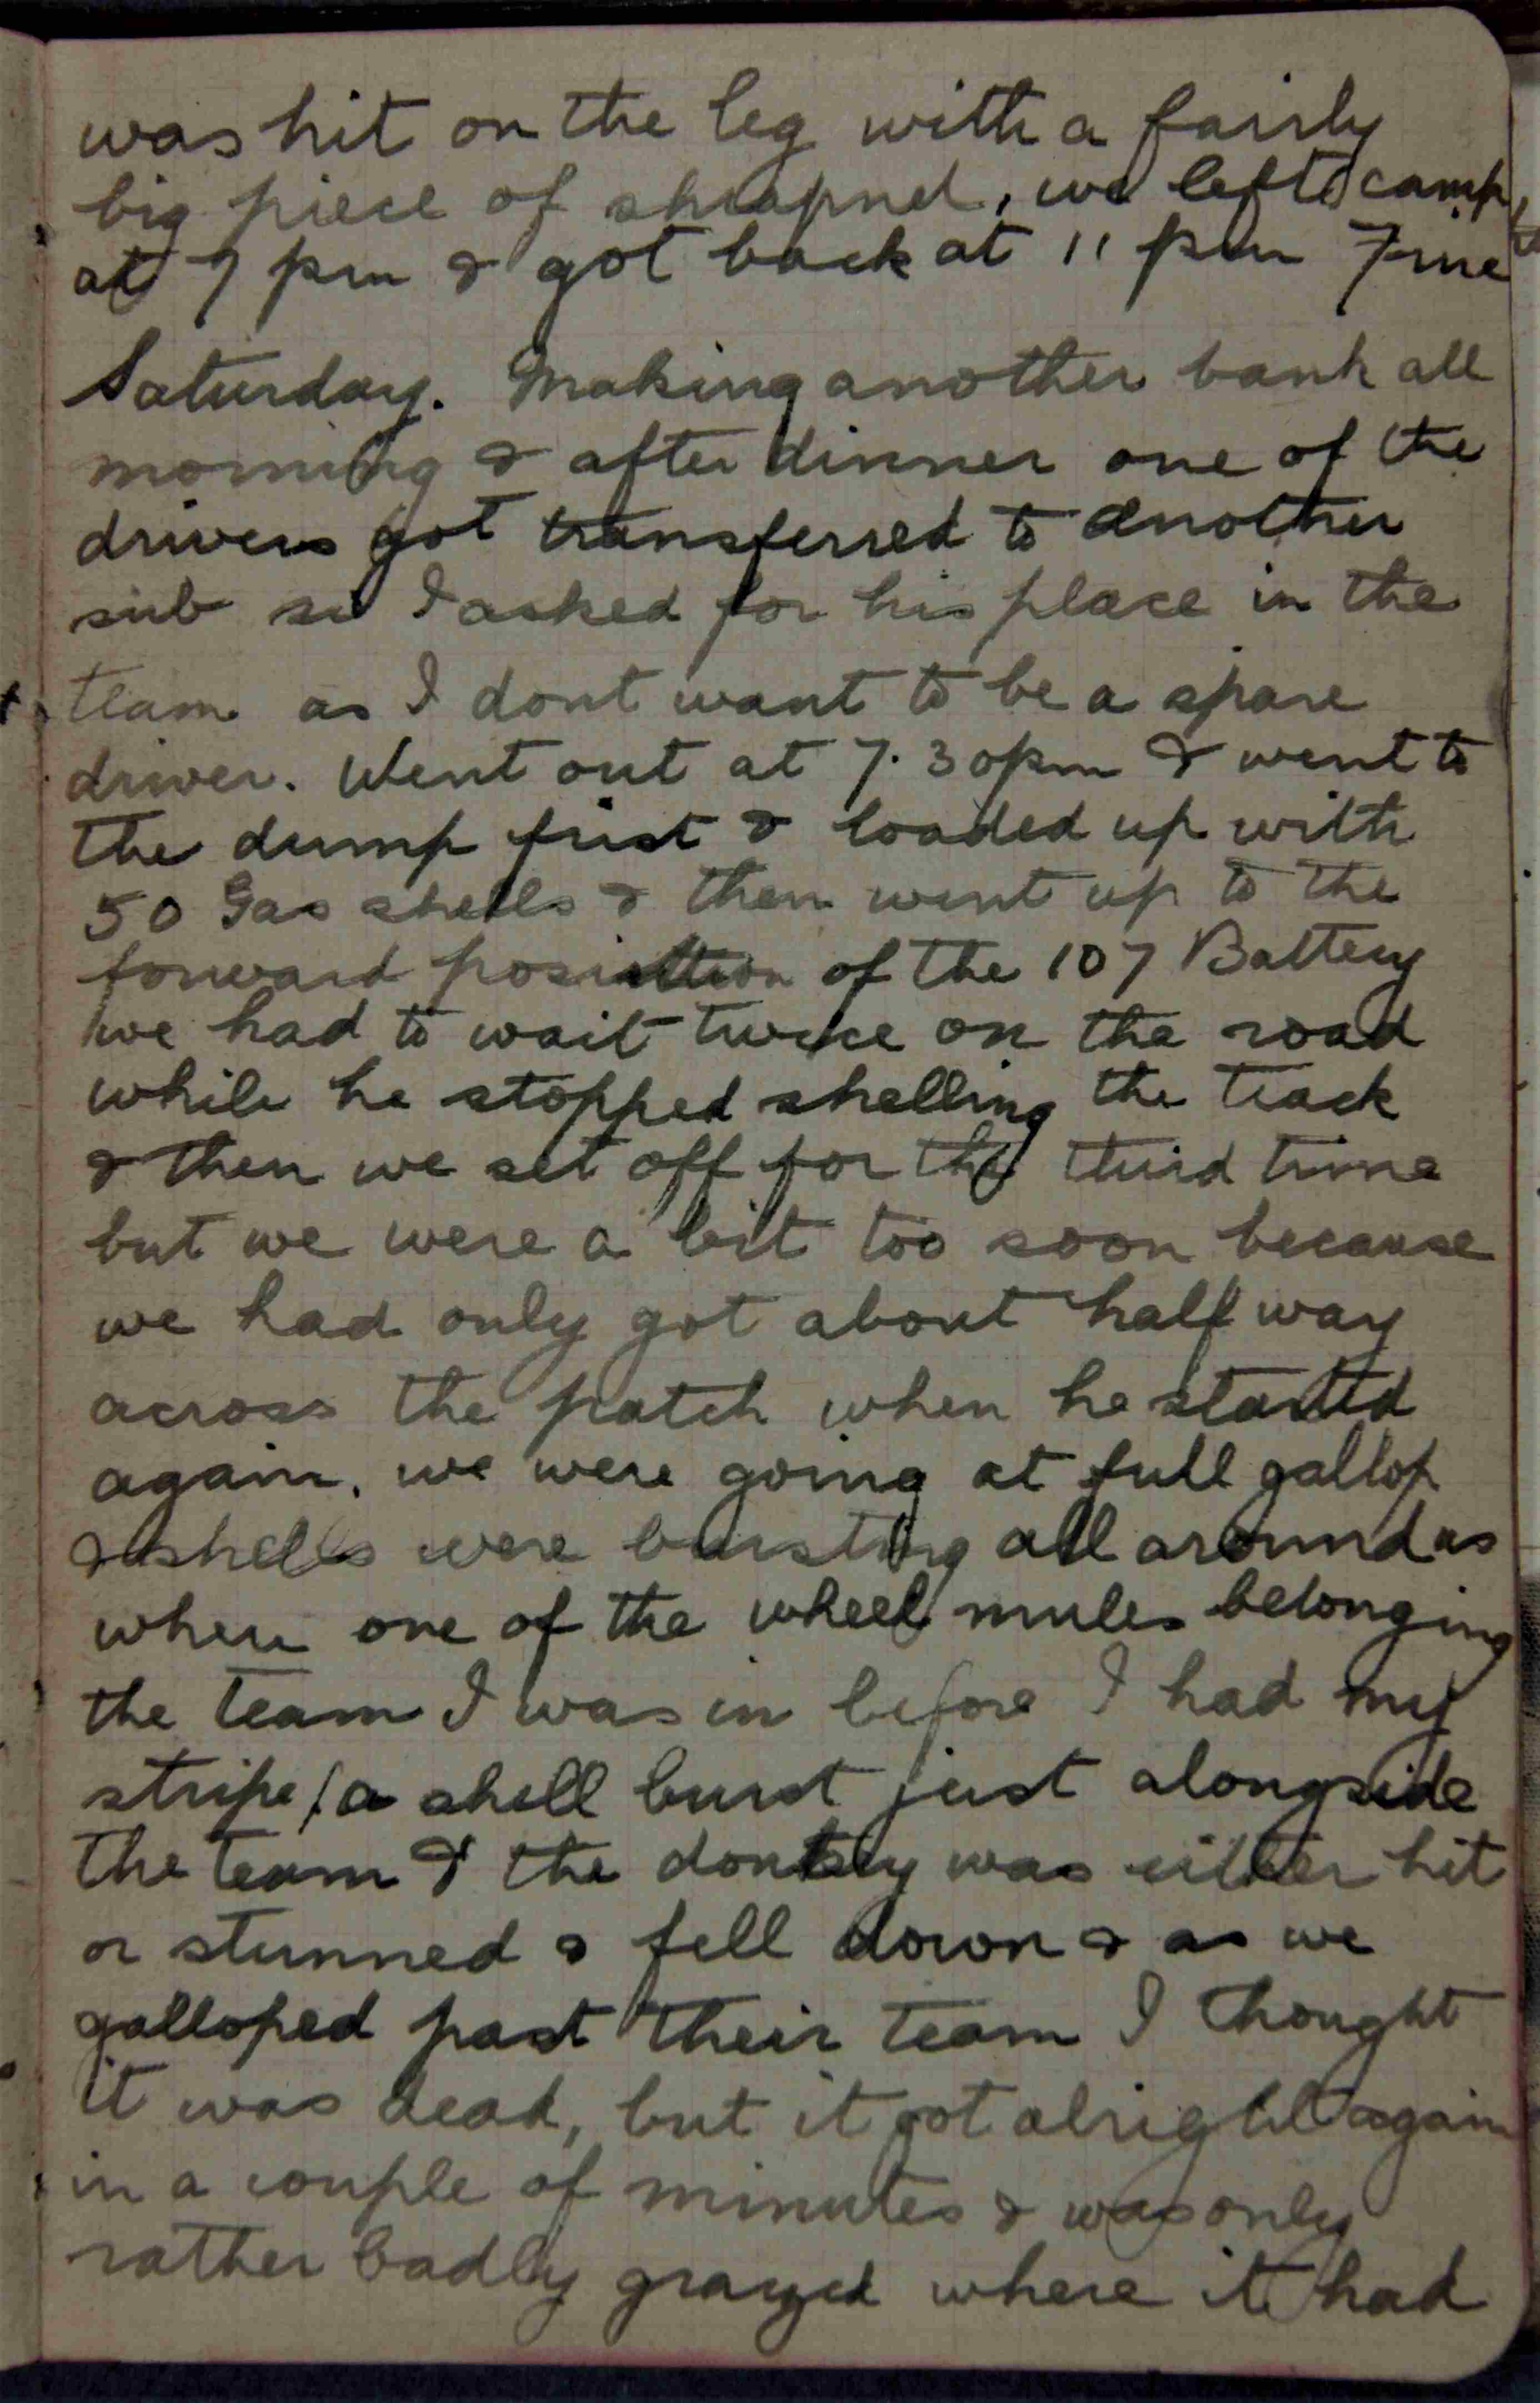 was hit on the leg with a fairly
big piece of shrapnel, we left camp
at 7 pm & got back at 11 pm Fine
Saturday. Making another bank all
morning & after dinner one of the
drivers got transferred to another
sub so I asked for his place in the
team as I dont want to be a spare
driver. Went out at 7.30pm & went to
the dump first & loaded up with
50 Gas shells & then went up to the
forward position of the 107 Battery
we had to wait twice on the road
while he stopped shelling the track
& then we set off for the third time
but we were a bit too soon because
we had only got about half way
across the patch when he started
again, we were going at full gallop
& shells were bursting all around us
when one of the wheel mules belonging
the team I was in before I had my
stripe, a shell burst just alongside
the team & the donkey was either hit
or stunned & fell down & as we
galloped past their team I thought
it was dead, but it got alright again
in a couple of minutes & was only
rather badly grazed where it had